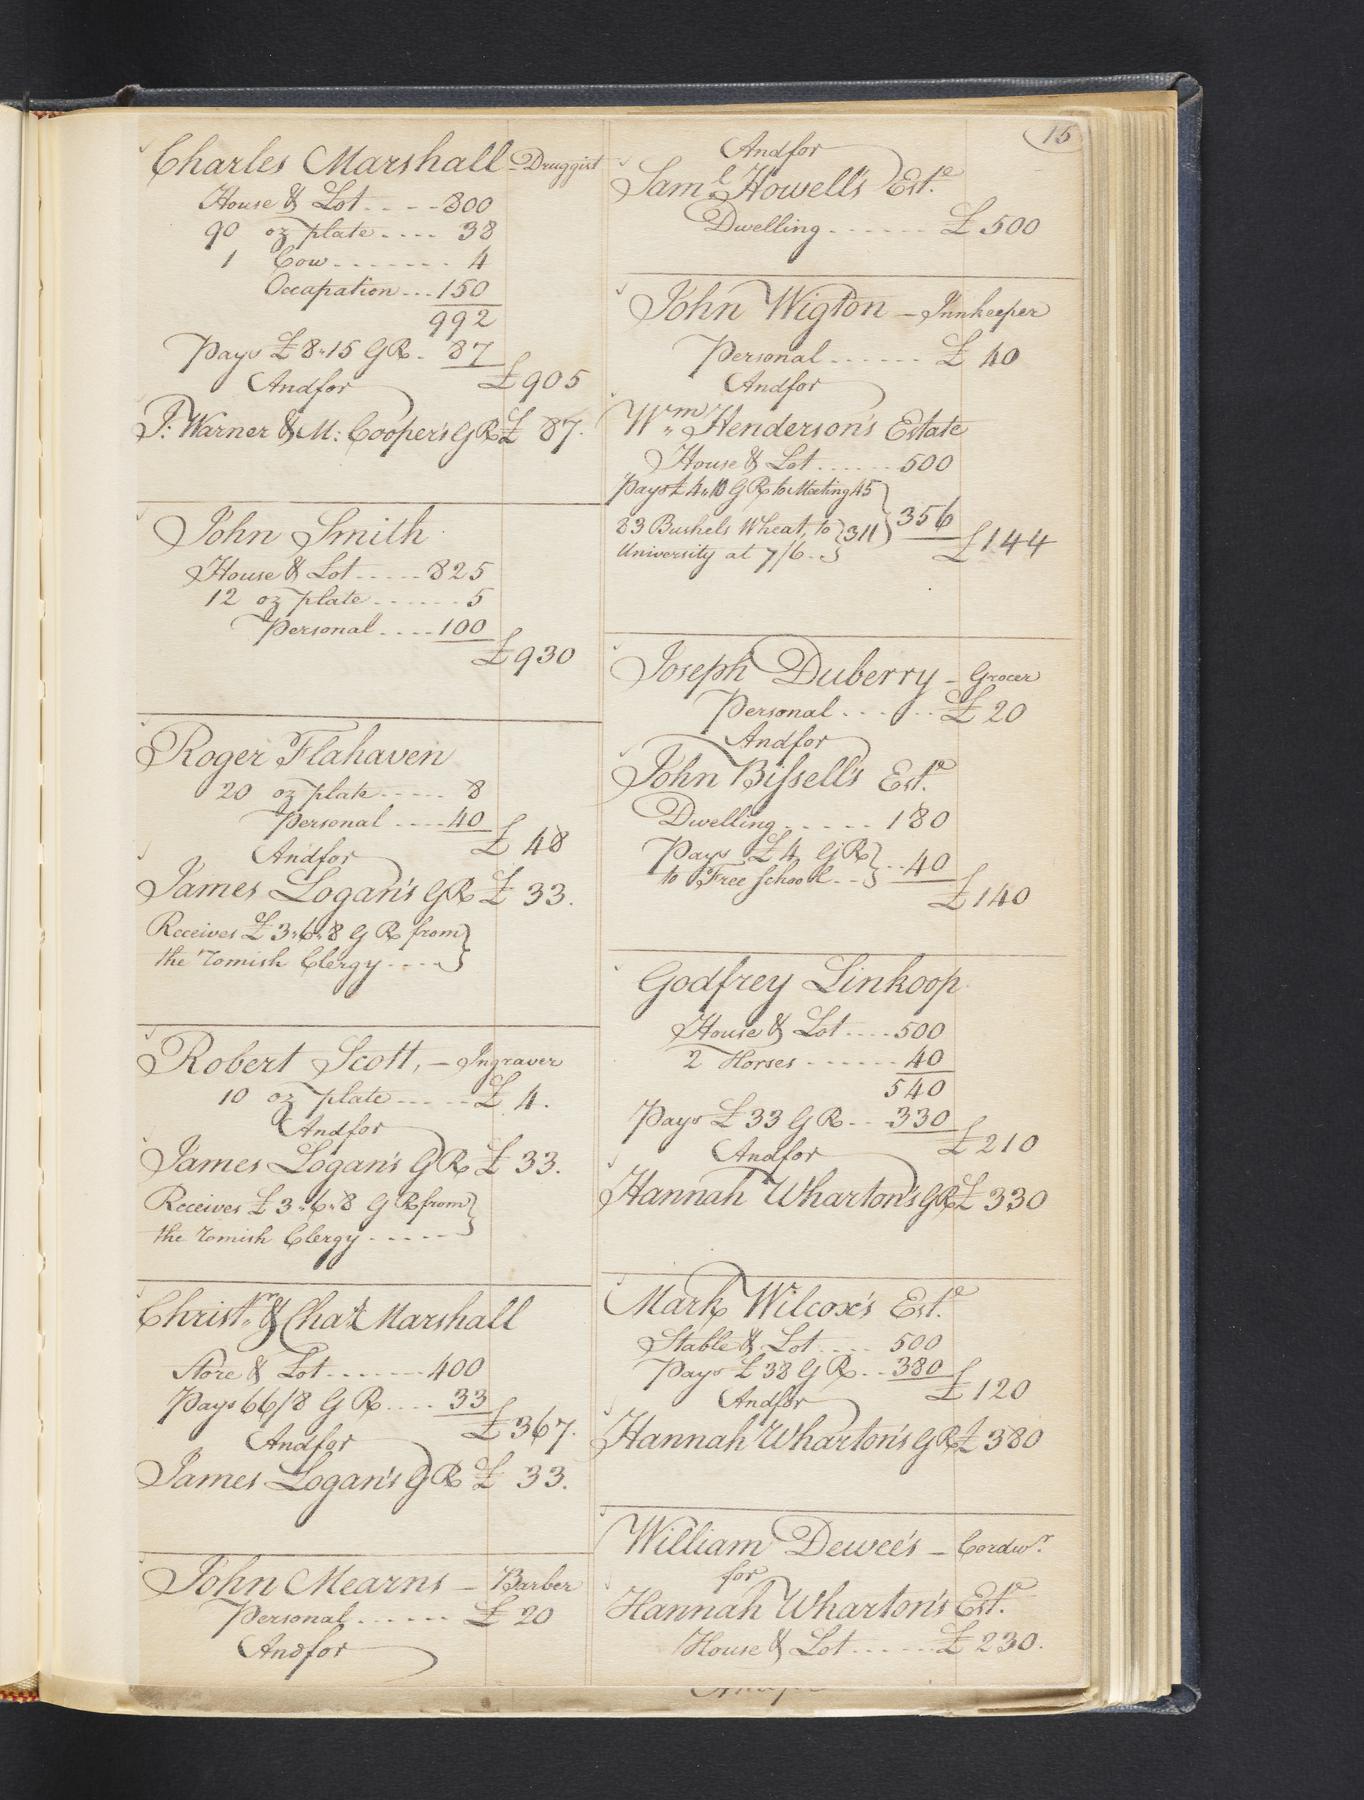 Charles Marshall - Druggist
House & Lot .... 800
90 oz plate .... 38
1 Cow ........ 4
Occapation ... 150
992
Pays £8..15 GR . 87
£905
Andfor
J: Warner & M: Cooper's GR £ 87.
John Smith
House & Lot ..... 825
12 oz plate ...... 5
Personal .... 100
£930
Roger Flahaven
20 oz plate ..... 8
Personal .... 40
£ 48
Andfor
James Logan's GR £ 33.
Receives £3..6..8 GR from
the romish Clergy ....
Robert Scott, - Ingraver
10 oz plate ..... £ 4.
Andfor
James Logan's GR £ 33.
Receives £3..6..8 GR from
the romish Clergy .....
Christr. & Chas. Marshall
Store & Lot ....... 400
Pays 66/8 GR .... 33
£367.
Andfor
James Logan's GR £ 33.
John Mearns - Barber
Personal ...... £ 20
Andfor
15
Andfor
Saml. Howell's Este.
Dwelling ...... £ 500
John Wigton - Innkeeper
Personal ...... £ 40
Andfor
Wm. Henderson's Estate
House & Lot ...... 500
Pays £4..10 GR to Meeting 45
83 Bushels Wheat, to 311 356
University at 7/6 ..
£144
Joseph Duberry - Grocer
Personal ...... £ 20
Andfor
John Bissell's Este.
Dwelling ..... 180
Pays £4 GR .. 40
to Free School ..
£140
Godfrey Linkoop
House & Lot .... 500
2 Horses ...... 40
540
Pays £33 GR ... 330
£210
Andfor
Hannah Wharton's GR £ 330
Mark Wilcox's Este.
Stable & Lot .... 500
Pays £38 GR .. 380
£120
Andfor
Hannah Wharton's GR £ 380
William Dewee's - Cordwr.
for
Hannah Wharton's Este.
House & Lot ..... £ 230.